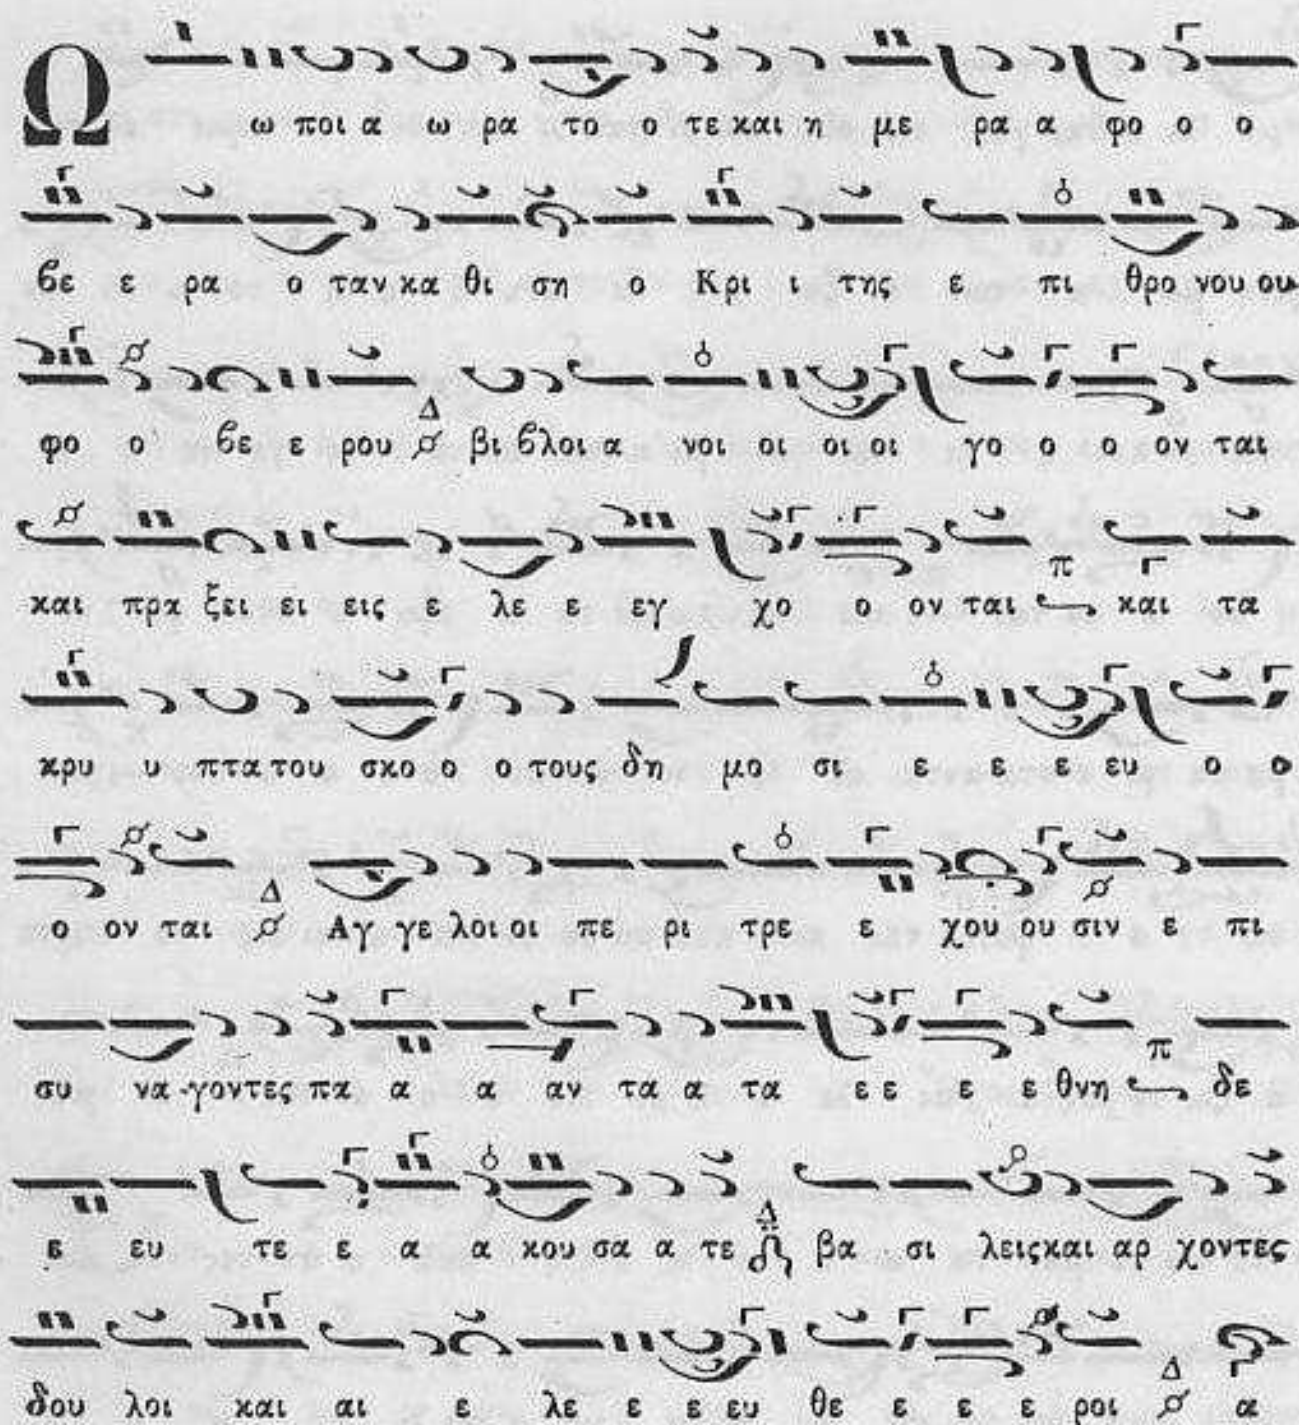 Ω ω ποι α ω ρα το ο τε και η με ρα α φο ο ο
βε ε ρα ο ταν κα θι ση ο Κρι ι της ε πι θρο νου ου
φο ο βε ε ρου Δ βι βλοι α νοι οι οι οι γο ο ο ον ται
και πρα ξει ει εις ε λε ε εγ χο ο ον ται π και τα
κρυ υ πτα του σκο ο ο τους δη μο σι ε ε ε ευ ο ο
ο ον ται Δ Αγ γε λοι οι πε ρι τρε ε χου ου σιν ε πι
συ να γοντες πα α α αν τα α τα ε ε ε ε θνη π δε
ε ευ τε ε α α κου σα α τε Δ βα σι λεις και αρ χοντες
δου λοι και αι ε λε ε ε ευ θε ε ε ε ροι Δ α